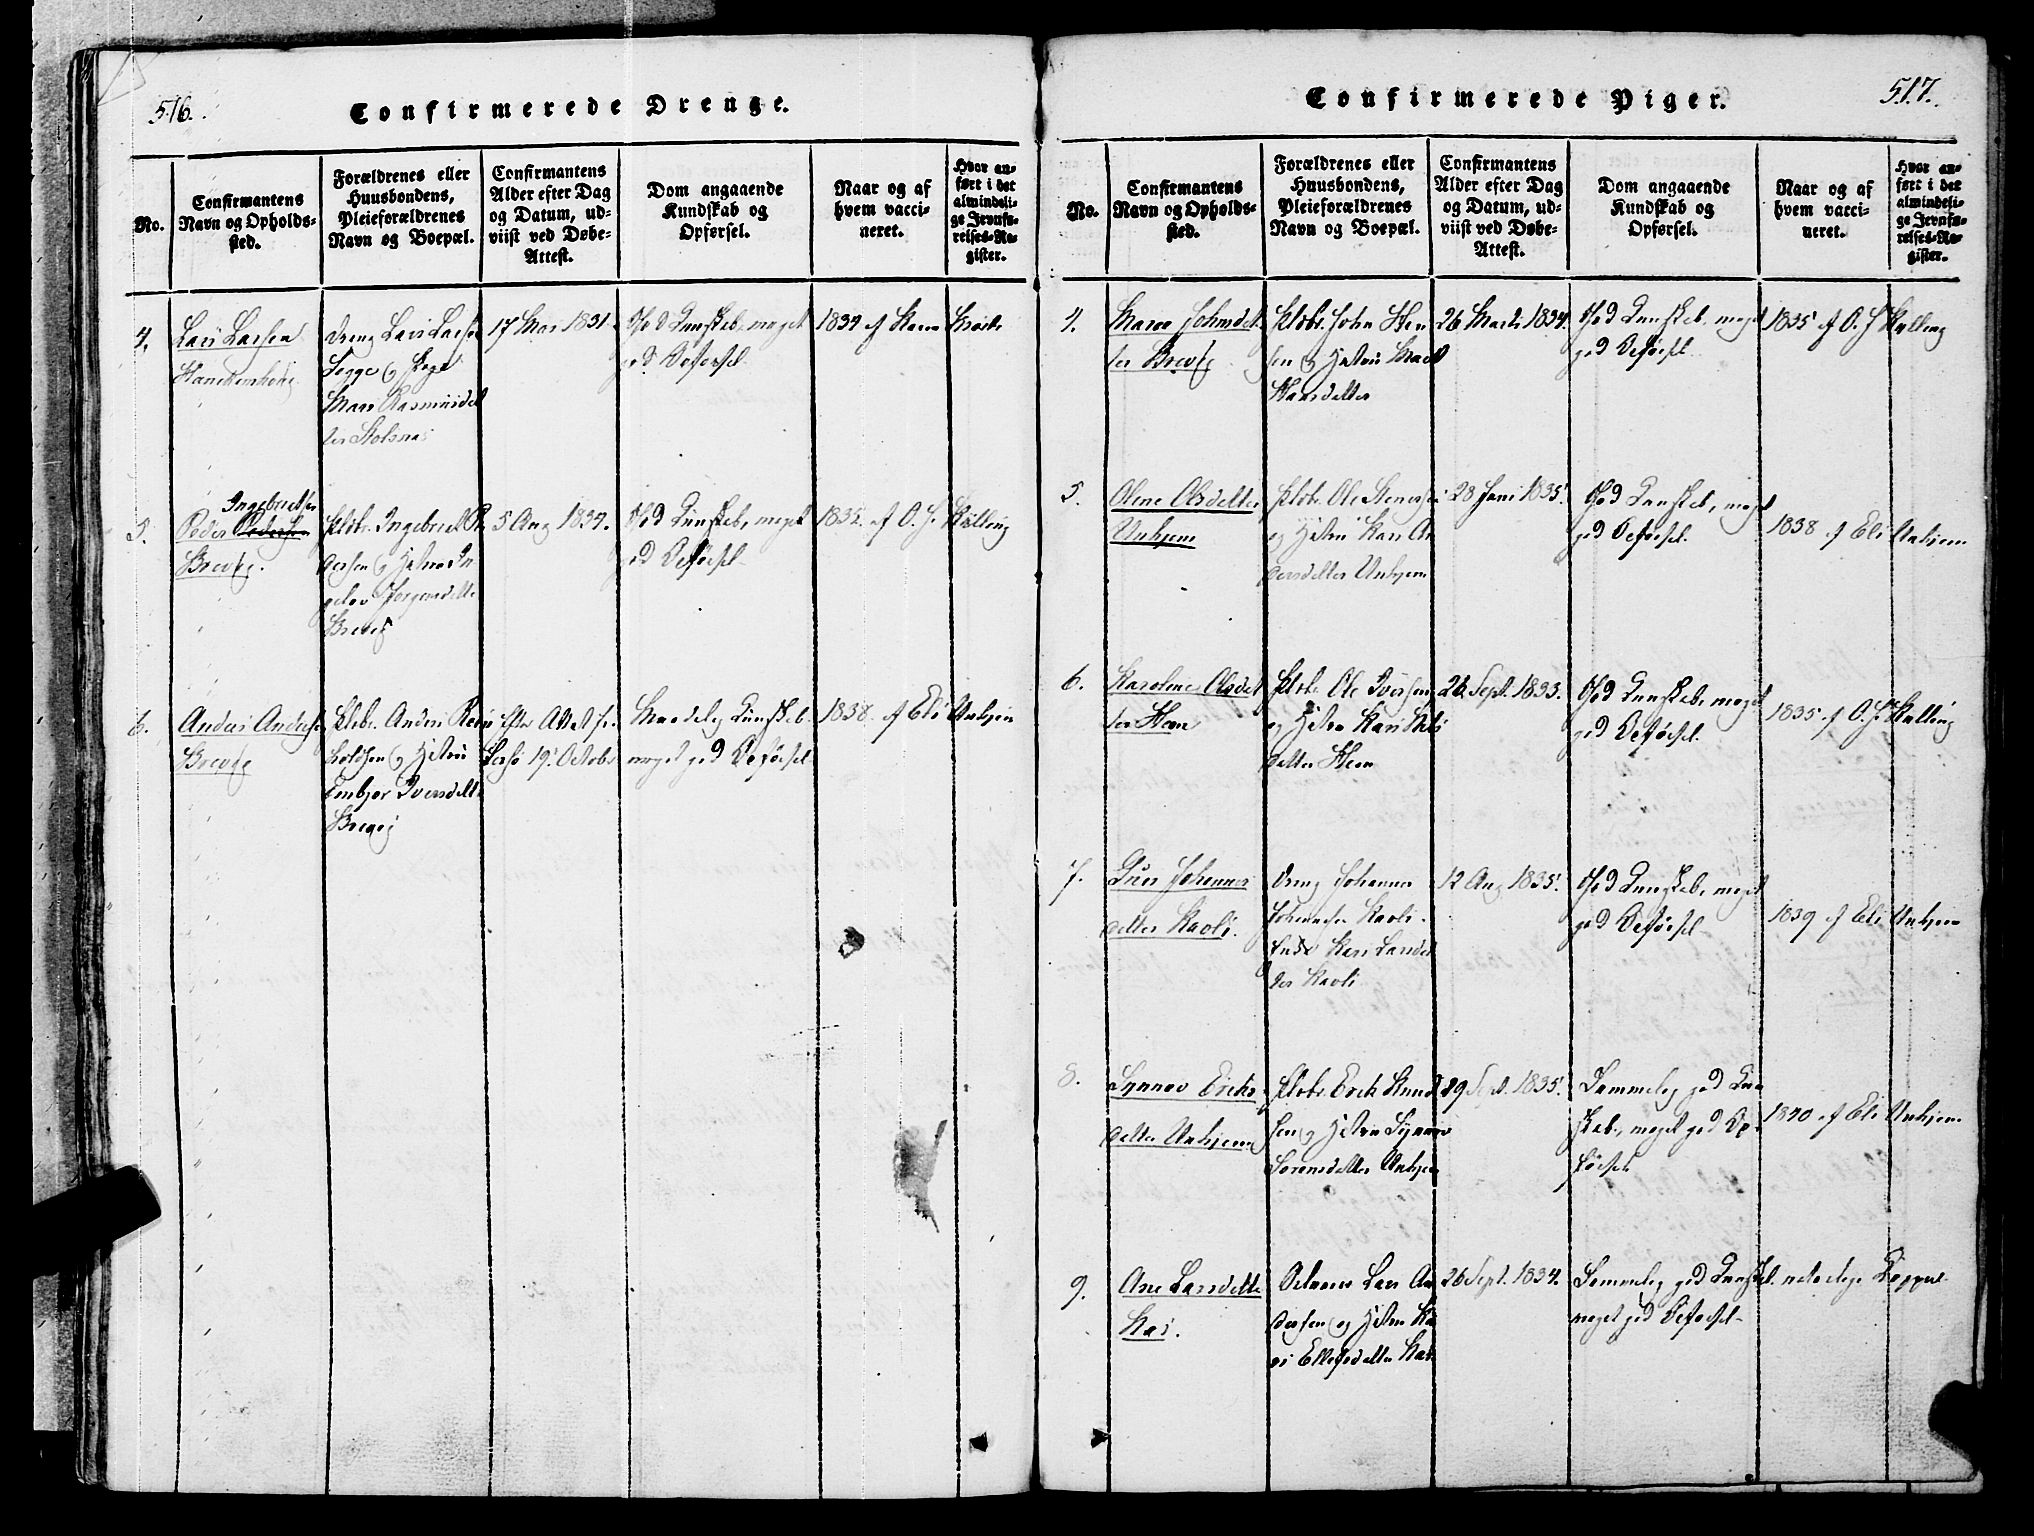 516.
Confirmerede Drenge.
No.
Confirmantens
Navn og Opholds-
sted.
Forældrenes eller
Huusbondens,
Pleieforældrenes
Navn og Boepæl.
Confirmantens
Alder efter Dag
og Datum, ud-
viist ved Døbe-
Attest.
Dom angaaende
Kundskab og
Opførsel.
Naar og af
hvem vacci-
neret.
Hvor an-
ført i det
almindeli-
ge Jevnfø-
relses-Re-
gister.
4.
Lars Larsen
Dreng Lars Larsen
Mari Rasmusdat
ter Stolsnes
17 Mai 1831.
God Kundskab, meget
god Opførsel
1834 af
5.
Ingebrectsen
Peder Pedersen
Brevig.
Pldbr. Ingebrect Pe
dersen og Hstru In
gebor Jørgensdatter
Brevig
5 Aug 1834.
God Kundskab, meget
god Opførsel
1835. af O. J. Kulling
6.
Anders Andersen
Brevig
Pldbr. Anders Rein
holdsen og Hstru
Embjør Iversdatter
Brevig
Efter Attest fra
19. Octobr
Maadelig Kundskab
meget god Opførsel
1838 af Eli Unhjem
Confirmerede Piger.
517.
No.
Confirmantens
Navn og Opholds-
sted.
Forældrenes eller
Huusbondens,
Pleieforældrenes
Navn og Boepæl.
Confirmantens
Alder efter Dag
og Datum, ud-
viist ved Døbe-
Attest.
Dom angaaende
Kundskab og
Opførsel.
Naar og af
hvem vacci-
neret.
Hvor an-
ført i det
almindeli-
ge Jevnfø-
relses-Re-
gister.
4.
Maren Johnsdat
ter Brevig
Pldbr. John Han
sen og Hstru Marit
Hansdatter
26 Marts 1834.
God Kundskab, meget
god Opførsel.
1835 af O. J. Kulling
5.
Olene Olsdatter
Unhjem
Pldbr. Ole Stenersen
og Hstru Kari An
dersdatter Unhjem
28 Juni 1835.
God Kundskab, meget
god Opførsel.
1838 af Eli Unhjem
6.
Karoline Olsdat
ter Hem
Pldbr. Ole Iversen
og Hstru Kari Nils
datter Hem
26 Sept. 1833.
God Kundskab, meget
god Opførsel.
1835 af O. J. Kulling
7.
Guri Johannes
datter Kavli.
Dreng Johannes
Johannesen Kavli.
Kari Larsdat
ter Kavli
12 Aug 1835.
God Kundskab, meget
god Opførsel
1839 af Eli Unhjem
8.
Synnøv Erichs
datter Unhjem
Pldbr. Erich Knud
sen og Hstru Synnøv
Sørensdatter Unhjem
29 Sept. 1835.
Temmelig god Kund
skab, meget god Op
førsel
1840 af Eli Unhjem
9.
Ane Larsdatter
Kas.
Lars An
dersen og Hstru Ka
ri Ellefsdatter Kas
26 Sept. 1834.
Temmelig god Kundskab
meget god Opførsel
naturlige Kopper